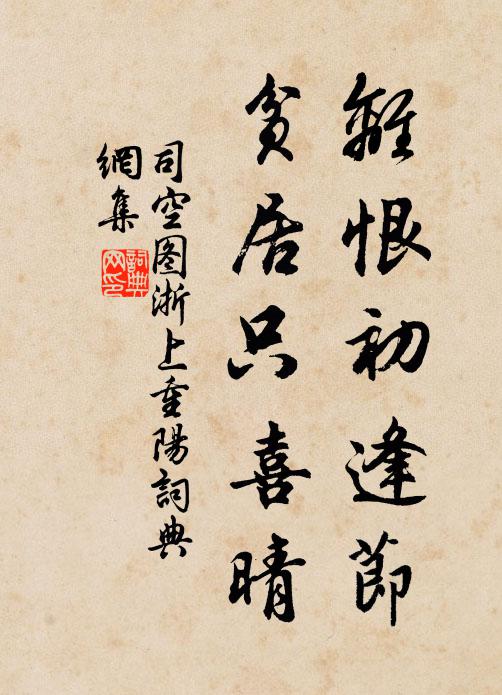 離恨初逢節
貧居只喜晴
司空图浙上重陽詞典
網集
詞典
网印